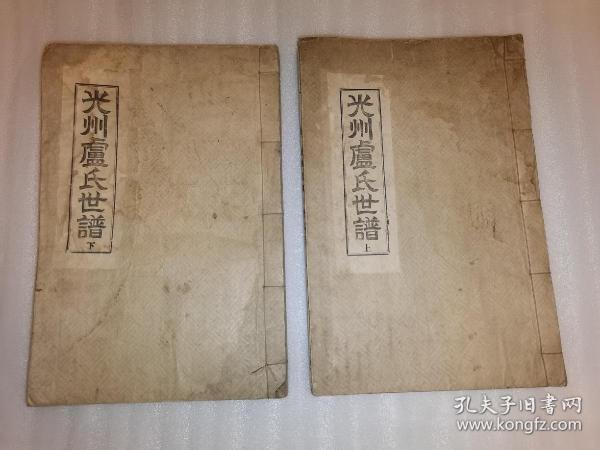 光州盧氏世譜
下
光州盧氏世譜
上
孔夫子旧书网
www.kongfz.com